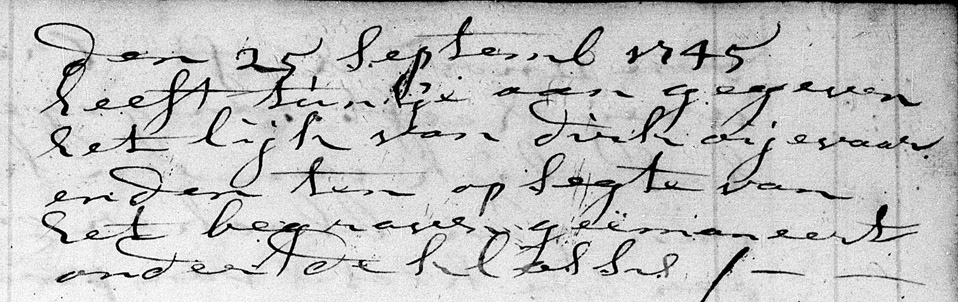 den 25 Septemb 1745
heeft tuntje aan gegeven
het lijk van dirk oijevaar
enden ten op segte van
het begraven geëmaneert
onder de klassis /